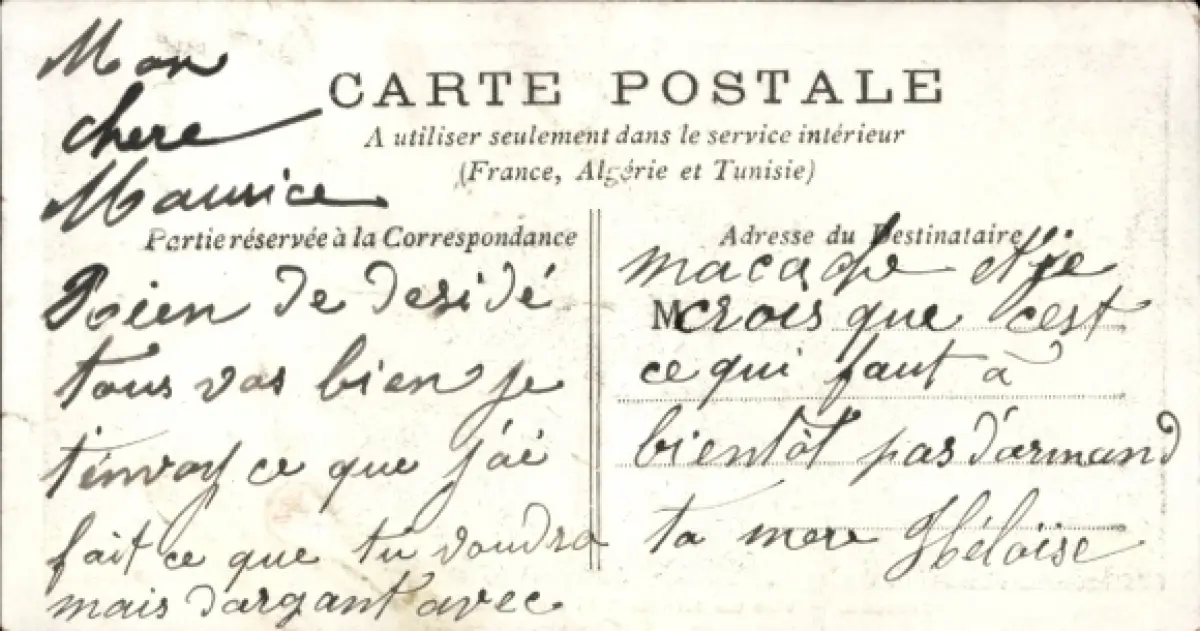 Mon
chere
Maurice
CARTE POSTALE
A utiliser seulement dans le service intérieur
(France, Algérie et Tunisie)
Partie réservée à la Correspondance
Rien de desidé
tous vas bien je
t'envoy ce que j'ai
fait ce que tu voudra
mais d'argant avec
Adresse du Destinataire
et je
M crois que c'est
ce qui faut à
bientôt pas d'armand
ta mere Héloïse